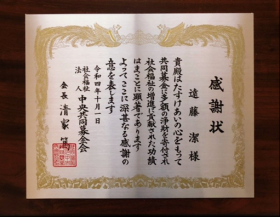 感謝状
遠藤 潔 様
貴殿はたすけあいの心をもって
共同募金に多額の浄財を寄付され
社会福祉の増進に貢献された功績
はまことに顕著であります
よってここに深甚なる感謝の
意を表します
令和四年十月一日
社会福祉法人 中央共同募金会
会長 清家 篤